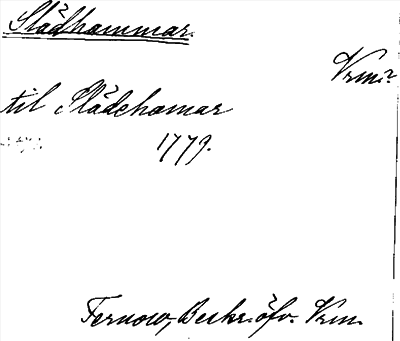 Slädhammar.
Vrm?
til Slädehamar
1779.
Fernow, Beskr. öfv. Vrm.